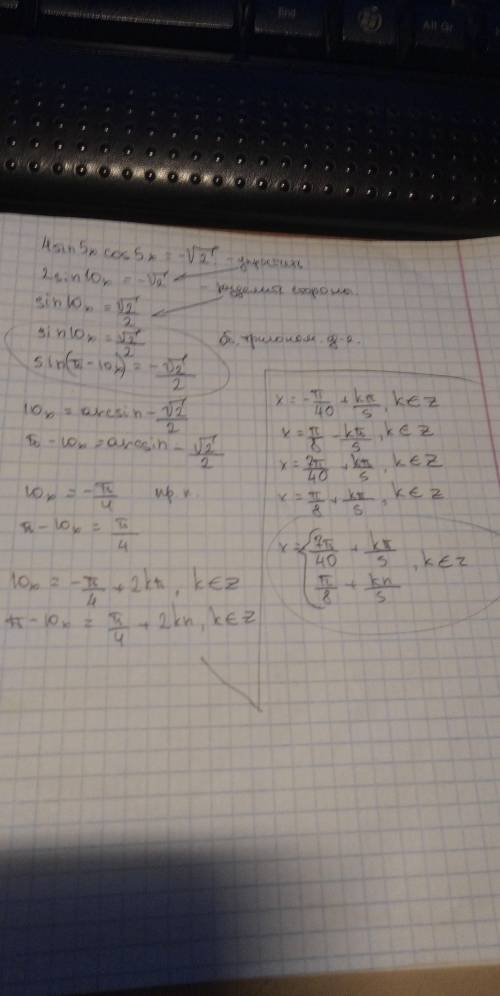 End
Alt Gr
4sin5x cos5x = -√2 - упростить
2sin10x = -√2
- разделим стороны
sin10x = √2/2
sin10x = √2/2
sin(π-10x) = -√2/2
10x = arcsin -√2/2
π-10x = arcsin -√2/2
10x = -π/4
π-10x = π/4
10x = -π/4 + 2kπ, k∈Z
π-10x = π/4 + 2kπ, k∈Z
x = -π/40 + kπ/5, k∈Z
x = π/8 - kπ/5, k∈Z
x = 7π/40 + kπ/5, k∈Z
x = π/8 + kπ/5, k∈Z
x = { 7π/40 + kπ/5
π/8 + kπ/5 , k∈Z